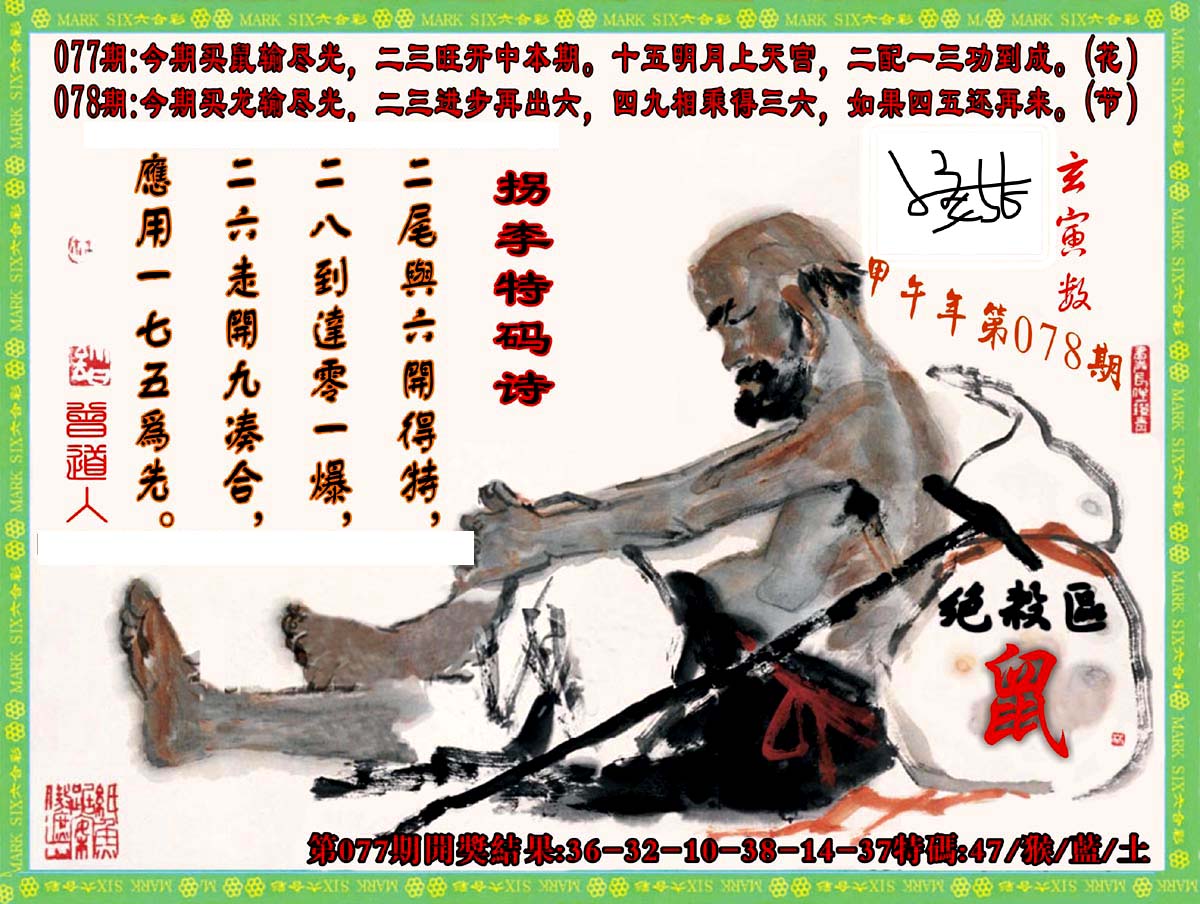 MARK SIX六合彩
077期:今期买鼠输尽光，二三旺开中本期。十五明月上天宫，二配一三功到成。(花)
078期:今期买龙输尽光．二三进步再出六，四九相乘得三六，如果四五还再来。(节)
玄寅数
甲午年第078期
拐李特码诗
二尾與六開得特，
二八到達零一爆，
二六走開九凑合，
應用一七五爲先。
曾道人
绝殺區
鼠
第077期開獎結果:36-32-10-38-14-37特碼:47/猴/藍/土